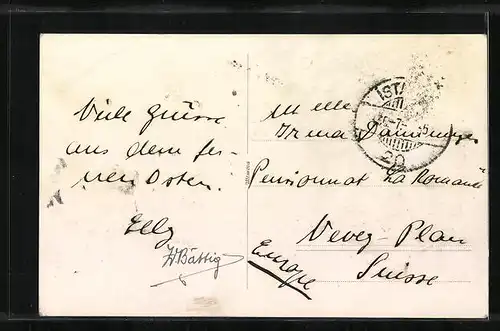 Viele Grüsse
aus dem fer-
nen Osten.
Elly
W Bättig
Melle
Irma
Pensionnat La Romande
Vevey-Plan
Suisse
Europe
ISTA
20